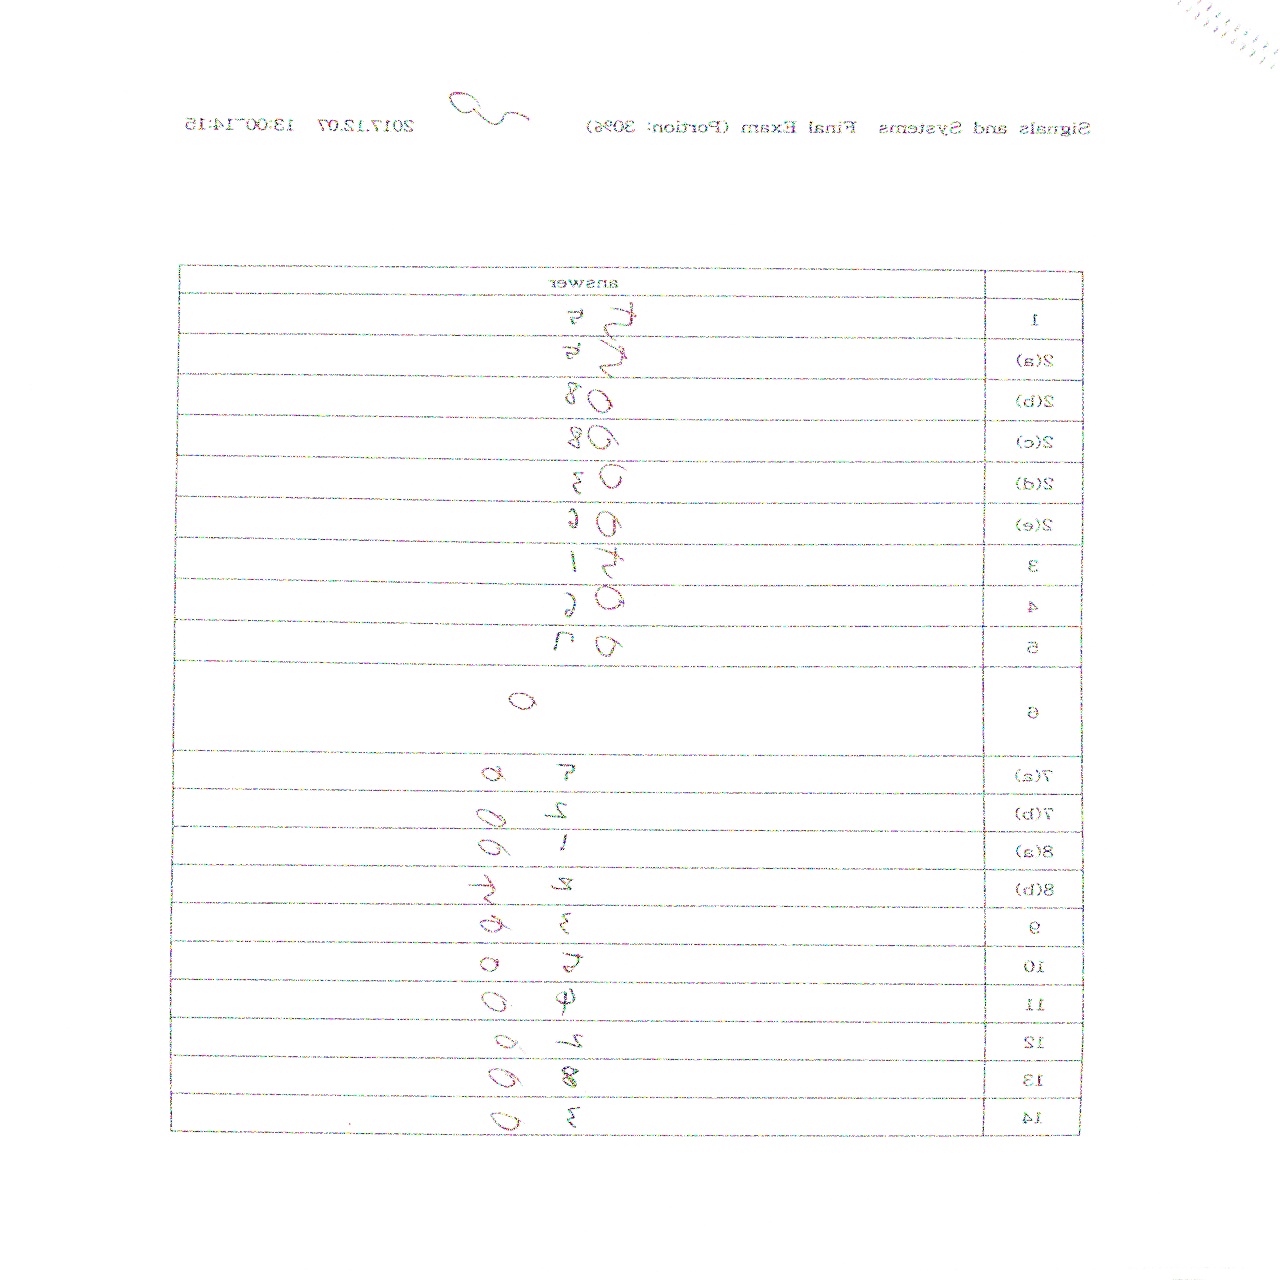 Signals and Systems Final Exam (Portion: 30%) 2017.12.07 13:00~14:15
answer
1 5
2(a) 5
2(b) 8
2(c) 8
2(d) 3
2(e) 6
3 1
4 6
5 7
6
7(a) 5
7(b) 2
8(a) 1
8(b) 2
9 3
10 5
11 4
12 7
13 8
14 3